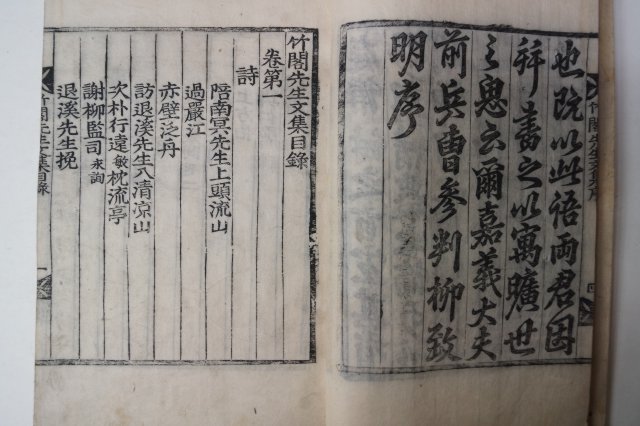 也旣以此語兩君因
幷書之以寓曠世
之思云爾嘉義大夫
前兵曹參判柳致
明序
竹閣先生文集目錄
卷第一
詩
陪南冥先生上頭流山
過嚴江
赤壁泛舟
訪退溪先生入清凉山
次朴行遠敏枕流亭
謝柳監司永詢
退溪先生挽
竹閣先生文集目錄 一